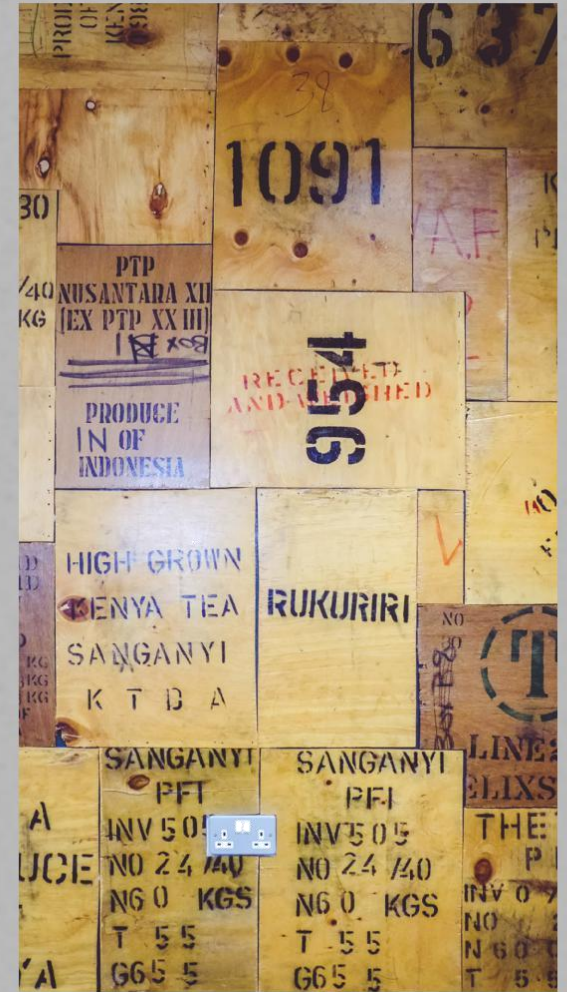 637
39
1091
30
/40
KG
PTP
NUSANTARA XII
(EX PTP XX III)
BOX
PRODUCE
IN OF
INDONESIA
A.F
954
RECEIVED
AND WEIGHED
HIGH GROWN
KENYA TEA
SANGANYI
K T D A
RUKURIRI
V
NO
T
LINE
ELIXS
A
UCE
YA
SANGANYI
PFI
INV 505
NO 24 /40
N60 KGS
T 55
G65 5
SANGANYI
PFI
INV 505
NO 24 /40
N60 KGS
T 55
G65 5
THE
P
INV 0
NO
N 60
T 5 5